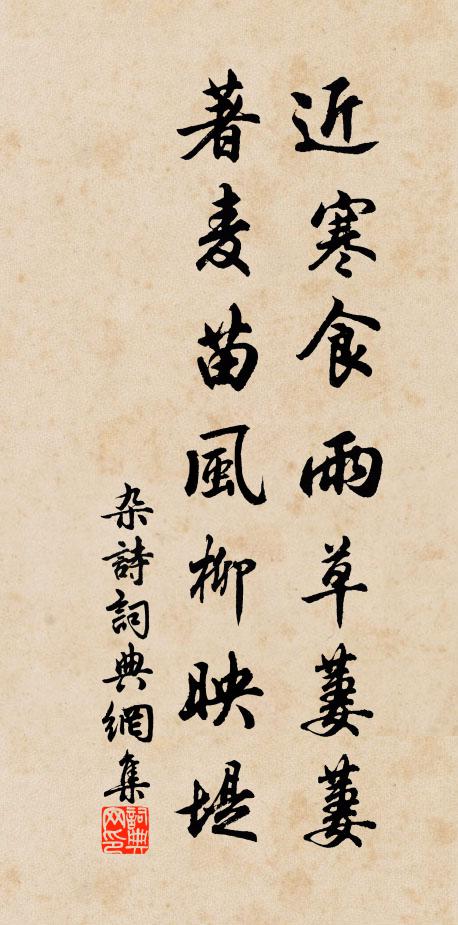 近寒食雨草萋萋
著麦苗風柳映堤
杂詩詞典網集
詞典
网印